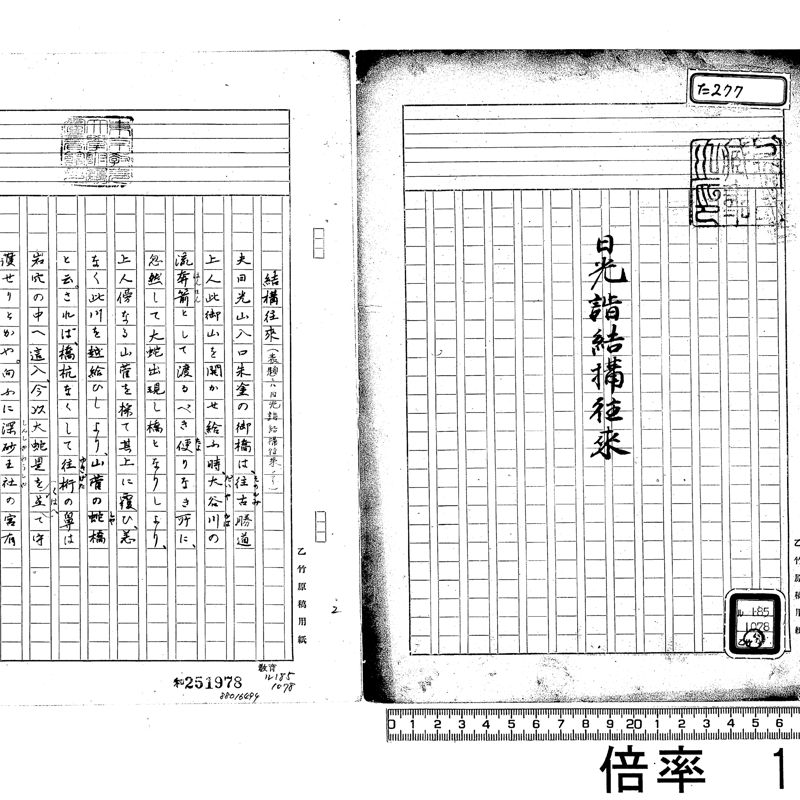 た277
日光詣結構往來
ル185
1078
乙竹原稿用紙
結構往來(表題ニハ日光詣結構往來トアリ)
夫日光山入口朱塗の御橋は、往古勝道
上人此御山を開かせ給ふ時、大谷川の
流奔箭として渡るべき便りなき所に、
忽然して大蛇出現し橋となりしより、
上人傍なる山菅を採て其上に覆ひ、恙
なく此川を越給ひしより、山菅の蛇橋
と云。されば、橋杭なくして往桁の鼻は
岩穴の中へ這入、今以大蛇是を並て守
護せりとかや。向ふに深砂王社の宮有
乙竹原稿用紙
2
教育
ル185
1078
和251978
88016499
0 1 2 3 4 5 6 7 8 9 20 1 2 3 4 5 6
倍率 1